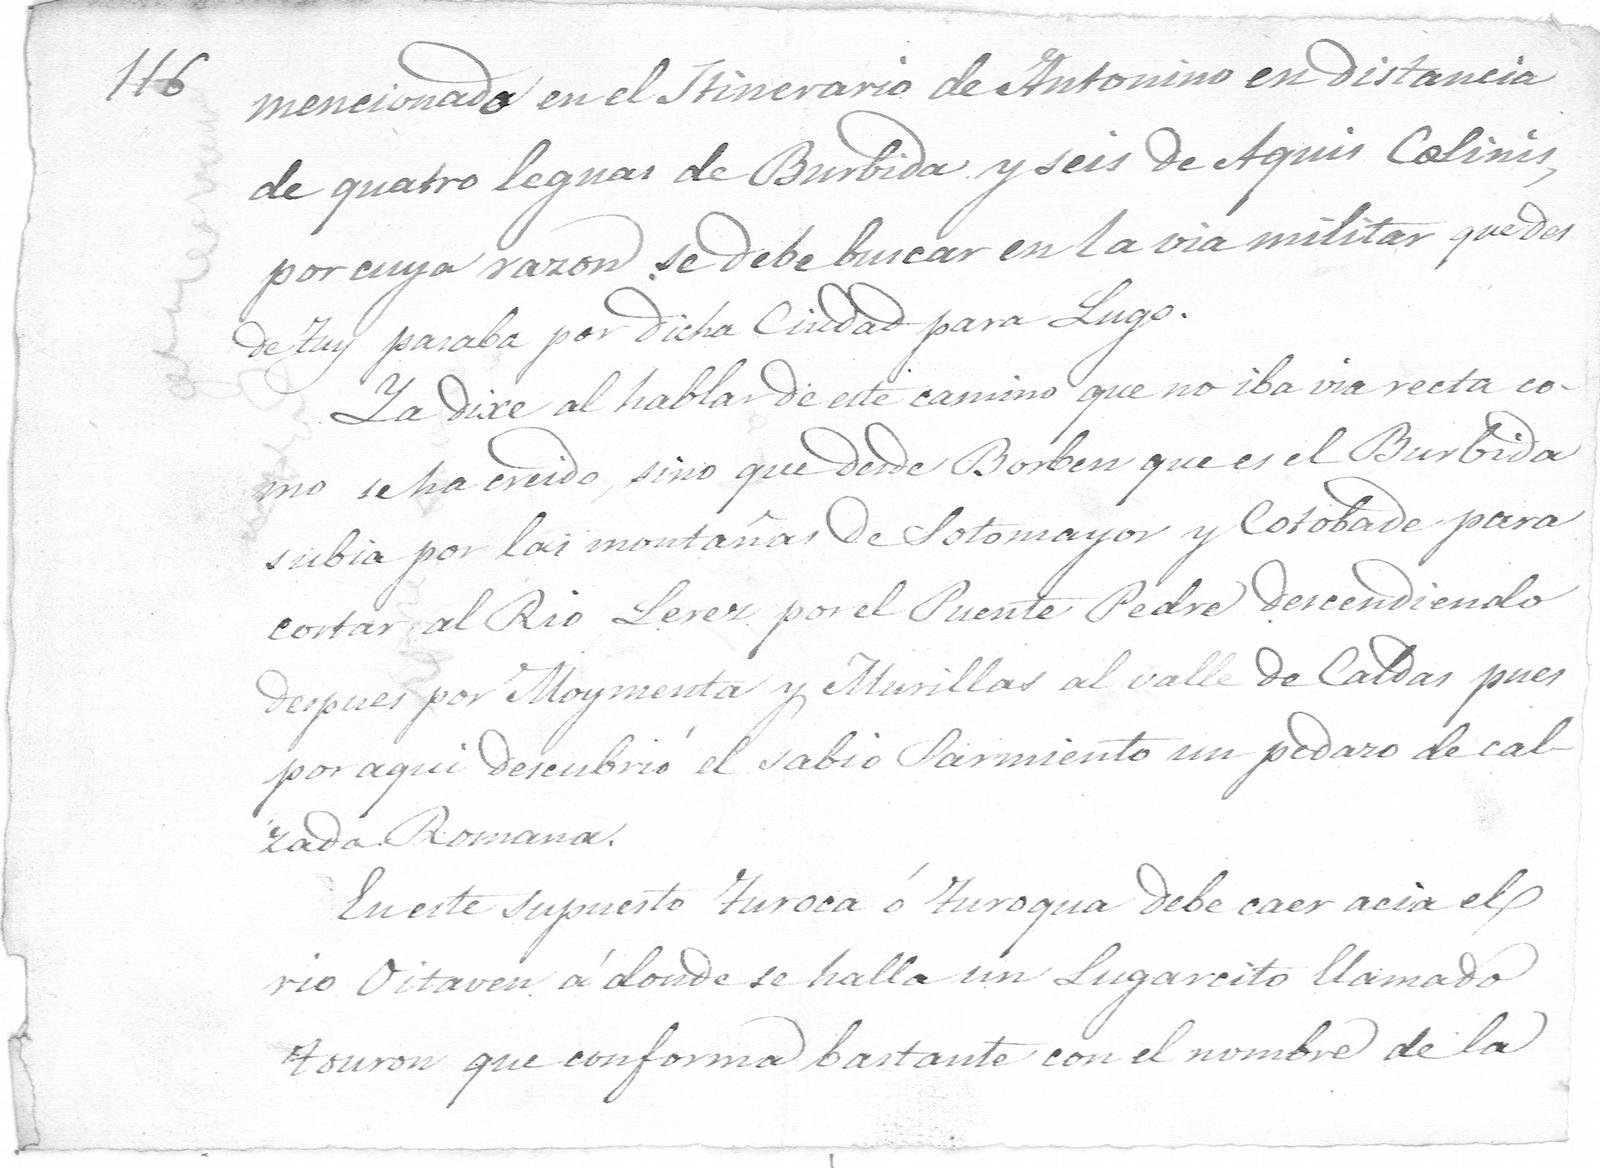 116
mencionada en el Itinerario de Antonino en distancia
de quatro leguas de Burbida y seis de Aquis Celinis,
por cuya razon se debe buscar en la via militar que des
de Tuy pasaba por dicha Ciudad para Lugo.
Ya dixe al hablar de este camino que no iba via recta co-
mo se ha creido, sino que desde Borben que es el Burbida
subia por las montañas de Sotomayor y Cotobade para
cortar al Rio Lerez por el Puente Pedre descendiendo
despues por Moymenta y Murillas al valle de Caldas pues
por aqui descubrió el sabio Sarmiento un pedazo de cal-
zada Romana.
En este supuesto Turoca ó Turoqua debe caer acia el
rio Oitaven á donde se halla un Lugarcito llamado
Touron que conforma bastante con el nombre de la